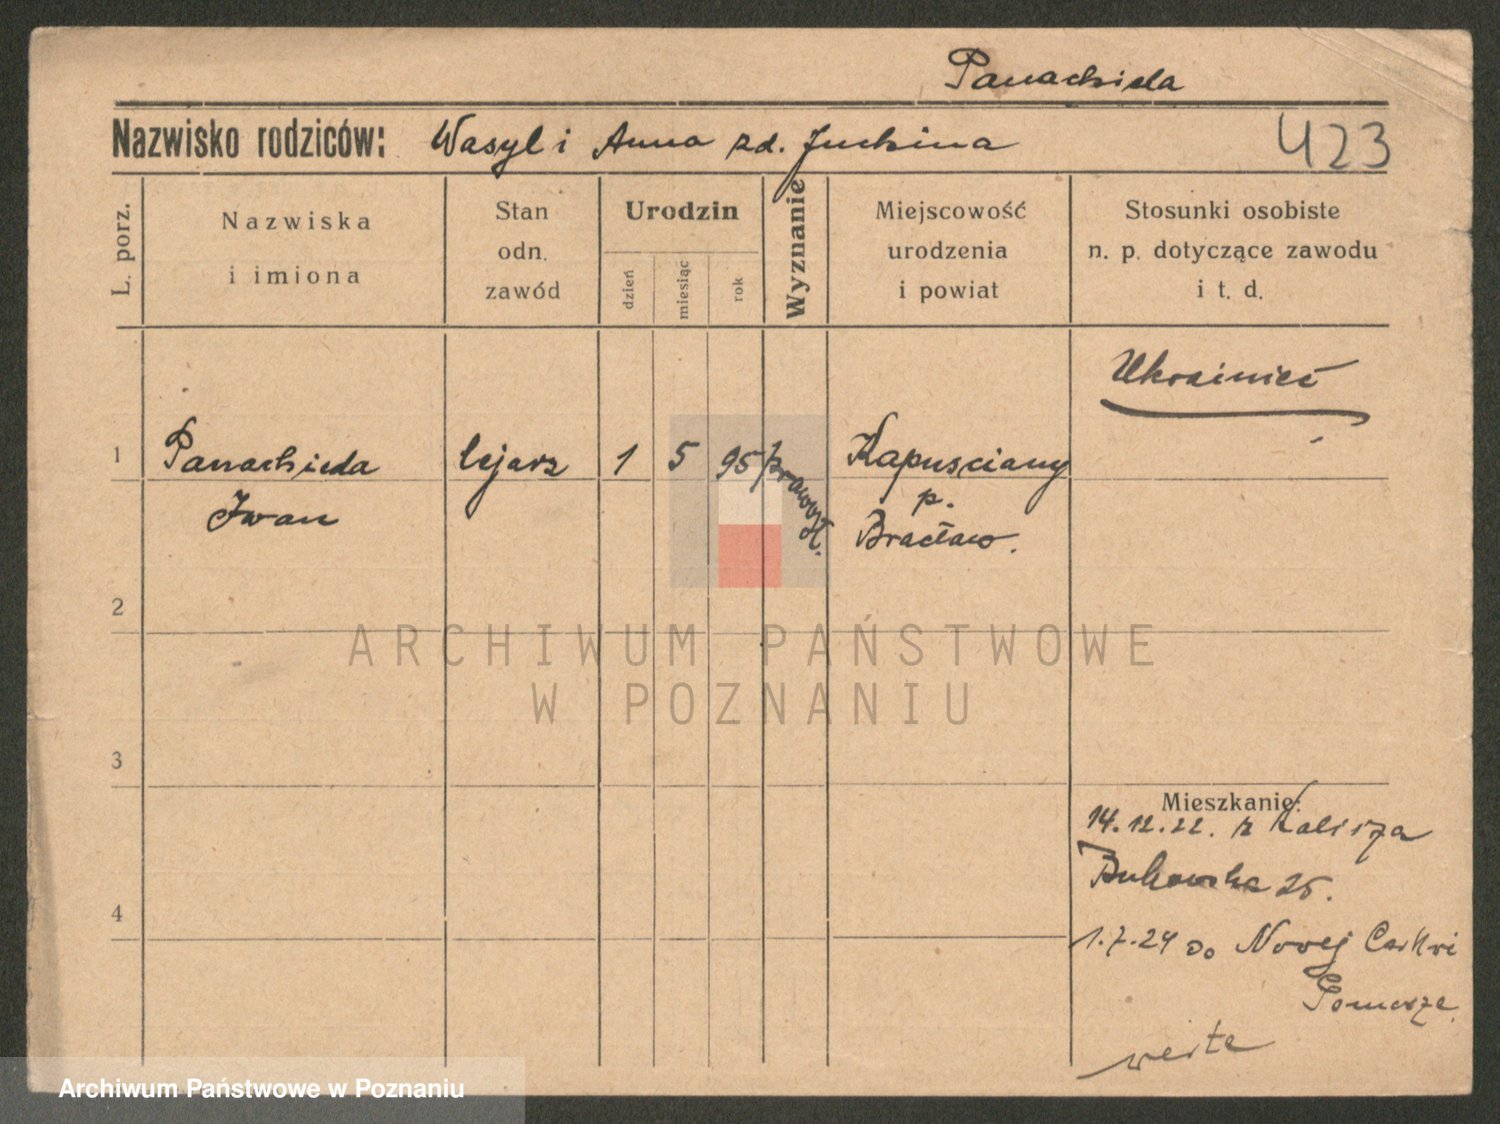 Panachida
Nazwisko rodziców: Wasyl i Anna zd. Juchina
423
L. porz.
Nazwiska
i imiona
Stan
odn.
zawód
Urodzin
dzień
miesiąc
rok
Wyznanie
Miejscowość
urodzenia
i powiat
Stosunki osobiste
n. p. dotyczące zawodu
i t. d.
Ukrainiec
1 Panachida lejarz 1 5 95 prawosł. Kapusciany
Iwan p.
Bracław.
2
3
4
Mieszkanie:
14.12.22. z Kalisza
Bukowska 25.
1.7.24 do Novej Cerkvi
Pomorze.
verte
ARCHIWUM PAŃSTWOWE
W POZNANIU
Archiwum Państwowe w Poznaniu